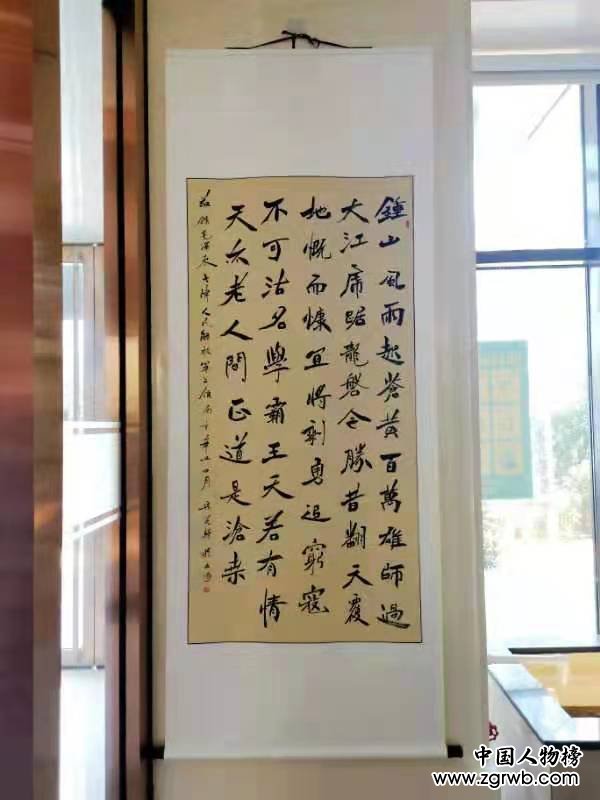 鍾山風雨起蒼黃百萬雄師過
大江虎踞龍盤今勝昔翻天覆
地慨而慷宜將剩勇追窮寇
不可沽名學霸王天若有情
天亦老人間正道是滄桒
錄毛澤東七律人民解放軍占領南京
中国人物榜
www.zgrwb.com